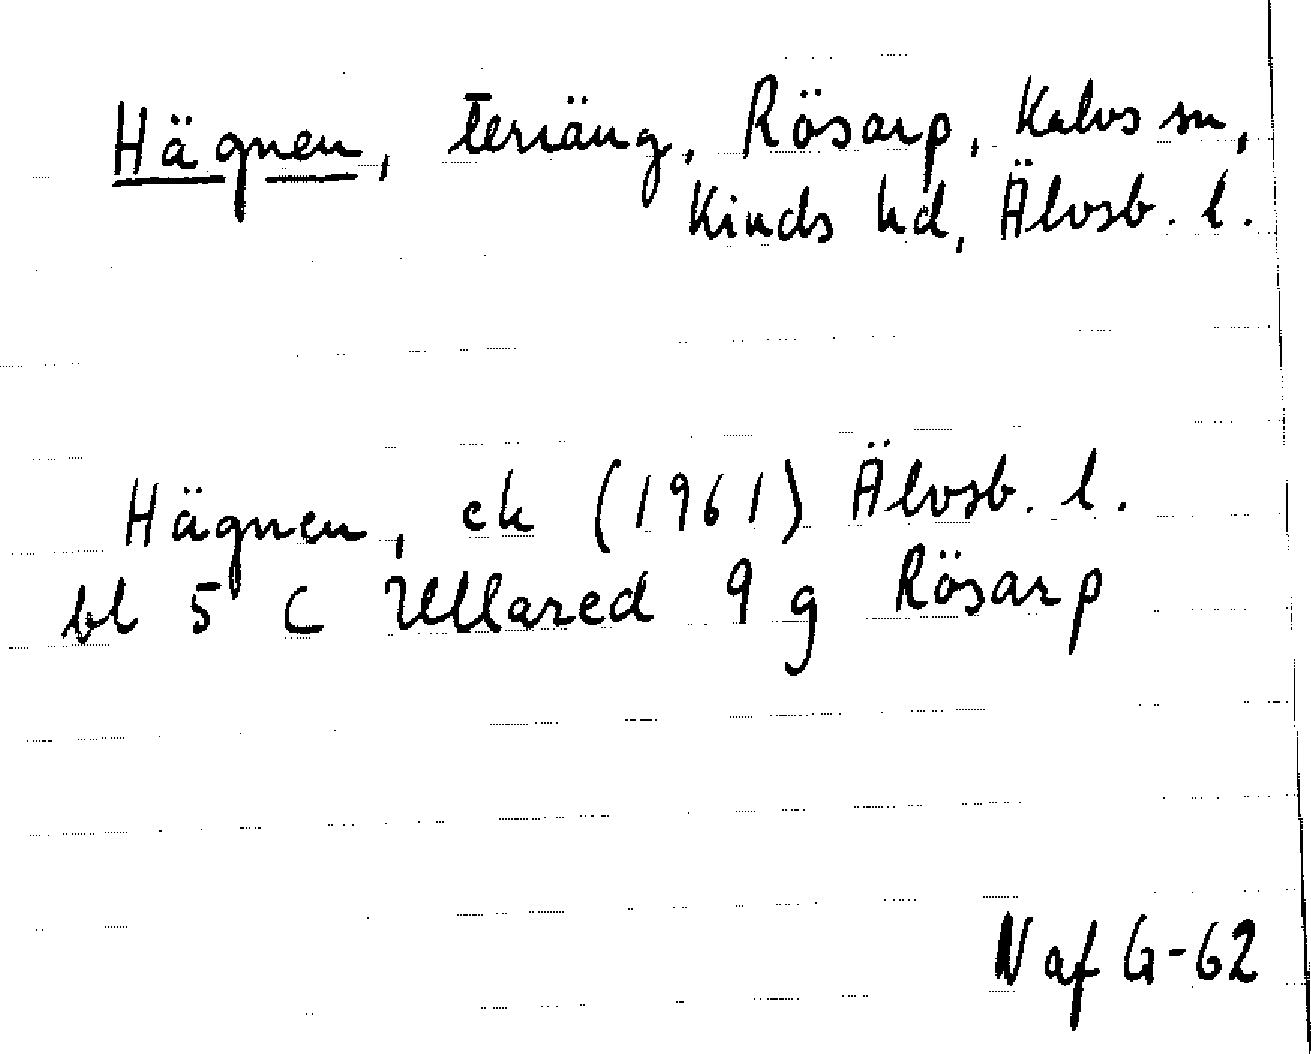 Hägnen, terräng, Rösarp, Kalvs sn,
Kinds hd, Älvsb. l.
Hägnen, ek (1961) Älvsb. l.
bl 5 C Ullared 9 g Rösarp
N af G-62